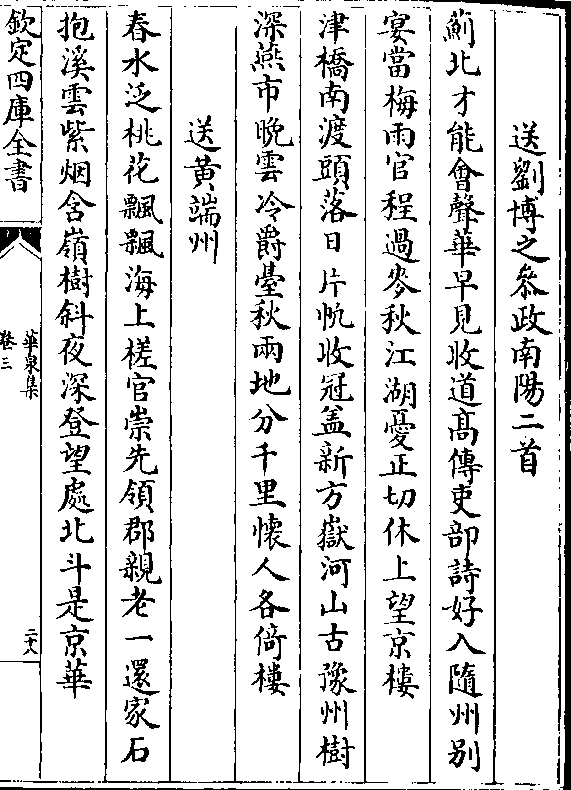 送劉博之叅政南陽二首
薊北才能會聲華早見收道髙傳吏部詩好入隨州别
宴當梅雨官程過麥秋江湖憂正切休上望京樓
津橋南渡頭落日片㠶收冠盖新方嶽河山古豫州樹
深燕市晩雲冷爵臺秋兩地分千里懷人各倚樓
送黄端州
春水泛桃花飄飄海上槎官崇先領郡親老一還家石
抱溪雲紫烟含嶺樹斜夜深登望處北斗是京華
欽定四庫全書
華泉集
卷三
二十八